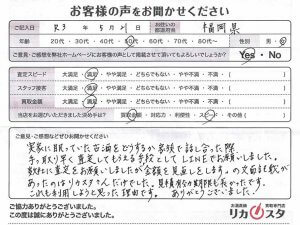 お客様の声をお聞かせください
ご記入日 R3年5月 日 お住いの都道府県 福岡県
年齢 20代・30代・40代・50代・60代・70代・80代～ 性別 男・女
ご意見・ご感想を弊社ホームページにお客様の声として掲載させて頂いてもよろしいでしょうか? Yes・No
査定スピード 大満足・満足・やや満足・どちらでもない・やや不満・不満・( )
スタッフ接客 大満足・満足・やや満足・どちらでもない・やや不満・不満・( )
買取金額 大満足・満足・やや満足・どちらでもない・やや不満・不満・( )
当店をお選びいただいた決め手は? 買取金額・対応力・利便性・スピード・その他( )
ご意見・ご感想などぜひお聞かせください
実家に眠っていた古酒をどうするか家族で話し合った際、
手っ取り早く査定してもらえる手段としてLINEでお願いしました。
数社に査定をお願いしましたが金額を見直しします。の文面記載が
あったのはリカスタさんだけでした。見積有効期限も長かったです。
これも利用しようと思った理由です。ありがとうございました。
ご協力ありがとうございました。
この度は誠にありがとうございました。
お酒高価買取専門店
リカスタ